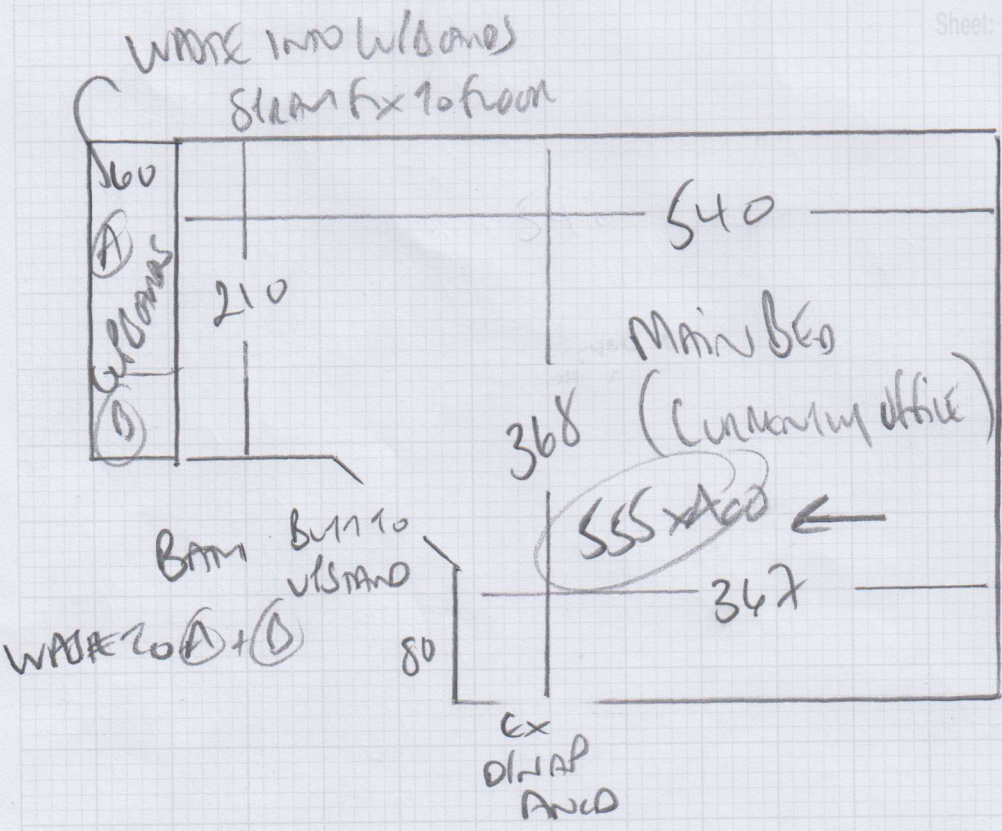 Sheet:
WASTE INTO C/BOARDS
SEAM FIX TO FLOOR
360
A
CUPBOARDS
B
210
540
MAIN BED
(CURRENTLY OFFICE)
368
555 x 400
347
BATH
BUTT TO
V/STAND
WASTE TO A + B
80
EX